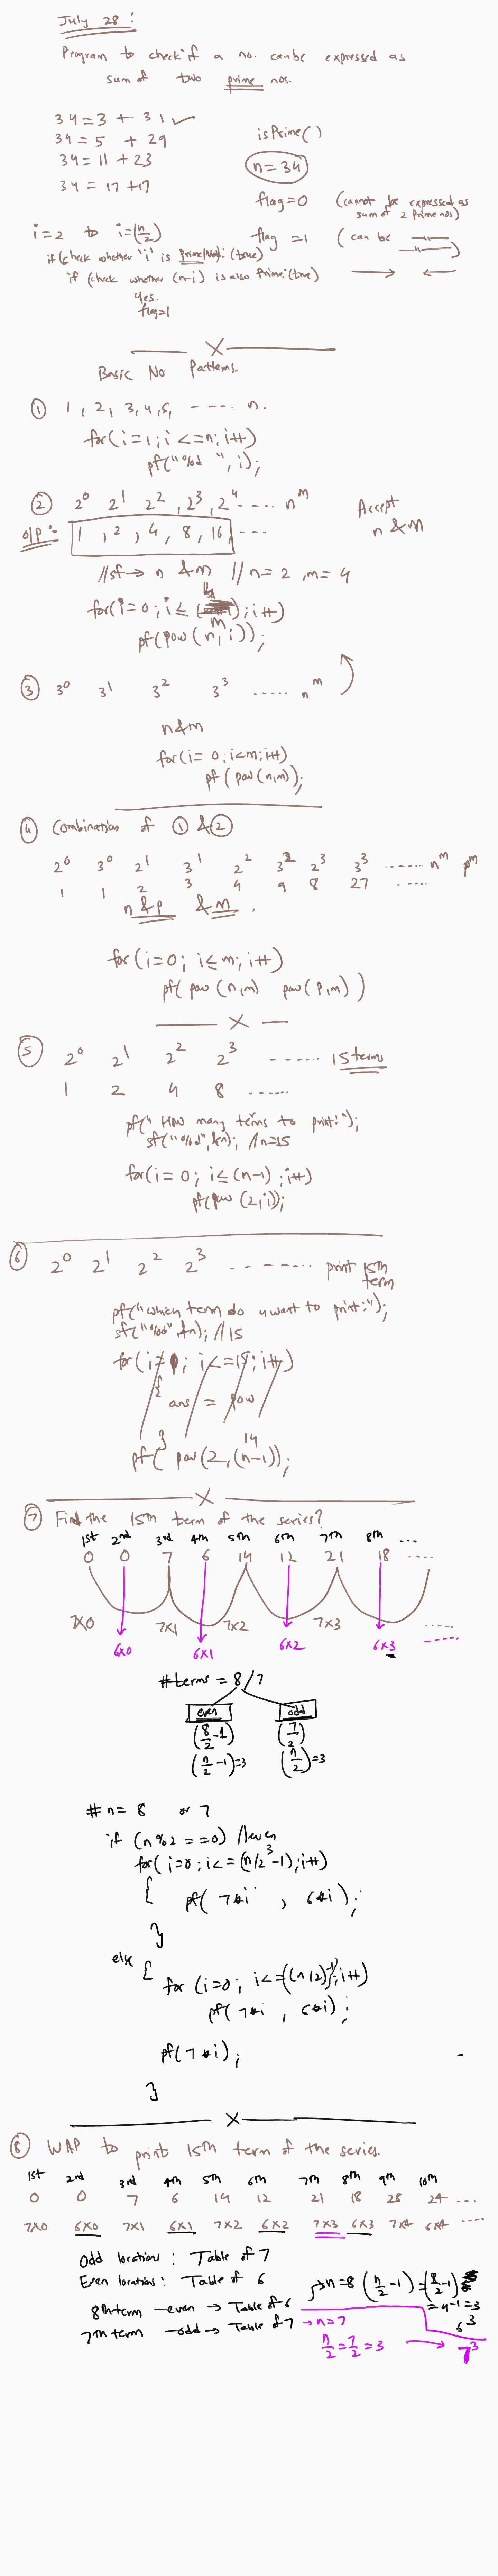 July 28 :
Program to check if a no. can be expressed as
sum of two prime nos.
34 = 3 + 31 ✓
34 = 5 + 29
34 = 11 + 23
34 = 17 + 17
isPrime()
n = 34
flag = 0 (cannot be expressed as
sum of 2 prime nos)
flag = 1 (can be —"— —"—)
i = 2 to i = (n/2)
if (check whether 'i' is Prime No): (true)
if (check whether (n-i) is also Prime: (true)
Yes.
flag=1
X
Basic No Patterns.
① 1, 2, 3, 4, 5, ---- n.
for(i=1; i<=n; i++)
pf("%d ", i);
② 2^0 2^1 2^2, 2^3, 2^4 ---- n^m
Accept
n & m
o/p: 1, 2, 4, 8, 16, ---
//sf → n & m // n=2, m=4
for(i=0; i ≤ m; i++)
pf(pow(n,i));
③ 3^0 3^1 3^2 3^3 ----- n^m
n & m
for(i= 0, i<m; i++)
pf(pow(n,m));
④ Combination of ① & ②
2^0 3^0 2^1 3^1 2^2 3^2 2^3 3^3 ------ n^m p^m
1 1 2 3 4 9 8 27 ----
n & p & m.
for(i=0; i≤m; i++)
pf( pow(n,m) pow(p,m) )
X
⑤ 2^0 2^1 2^2 2^3 ----- 15 terms
1 2 4 8 ------
pf("How many terms to print:");
sf("%d",&n); //n=15
for(i=0; i≤(n-1); i++)
pf(pow(2,i));
⑥ 2^0 2^1 2^2 2^3 --------- print 15th
term
pf("which term do u want to print:");
sf("%d",&n); //15
for(i=0; i<=15; i++)
{
ans = pow
}
14
pf( pow(2,(n-1));
X
⑦ Find the 15th term of the series?
1st 2nd 3rd 4th 5th 6th 7th 8th ...
0 0 7 6 14 12 21 18 ----
7x0 7x1 7x2 7x3 -----
6x0 6x1 6x2 6x3 -----
#terms = 8/7
even odd
(8/2 -1) (7/2)
(n/2 -1)=3 (n/2)=3
# n= 8 or 7
if (n%2 ==0) //even
for( i=0; i<=(n/2-1); i++) 3
{ pf( 7*i , 6*i);
}
else {
for (i=0; i<=((n/2)-1); i++)
pf( 7*i , 6*i);
pf(7*i);
}
X
⑧ WAP to print 15th term of the series.
1st 2nd 3rd 4th 5th 6th 7th 8th 9th 10th
0 0 7 6 14 12 21 18 28 24 ----
7x0 6x0 7x1 6x1 7x2 6x2 7x3 6x3 7x4 6x4 ----
Odd location: Table of 7
Even locations: Table of 6
8th term — even → Table of 6 → n=8 (n/2 -1) = (8/2 -1)
= 4-1 = 3
6^3
7th term — odd → Table of 7 → n=7
n/2 = 7/2 = 3 → 7^3